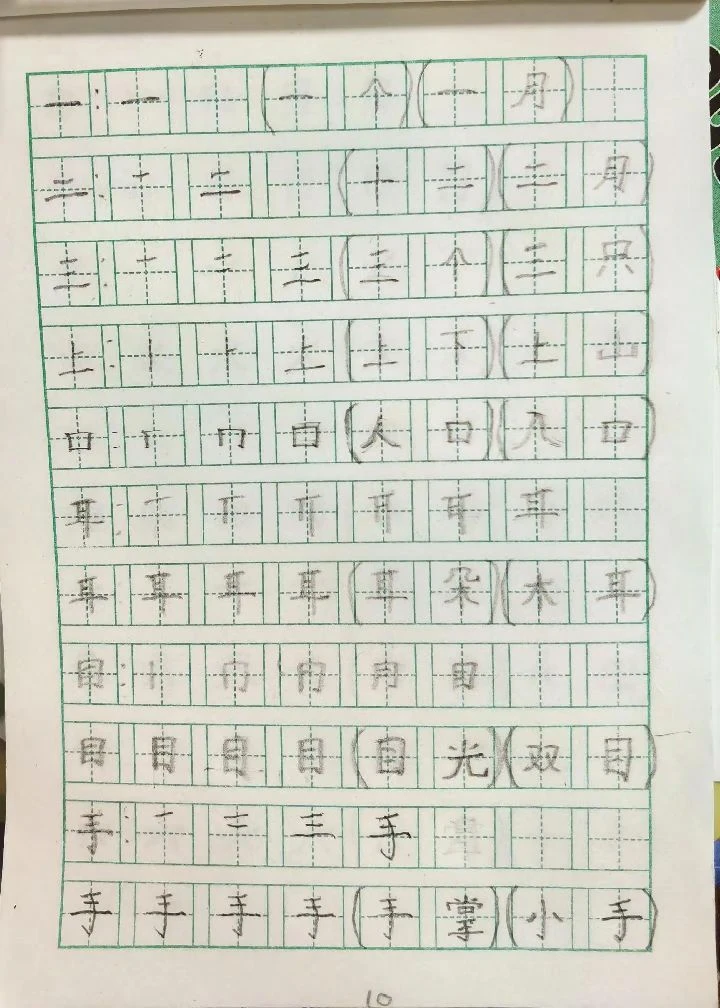 一：一（一个）（一月）
二：一二（十二）（二月）
三：一二三（三个）（三只）
上：丨⺊上（上下）（上山）
口：丨冂口（人口）（入口）
耳：一丅耳
耳耳耳耳（耳朵）（木耳）
目：丨冂月目
目目目目（目光）（双目）
手：一二三手
手手手手（手掌）（小手）
10